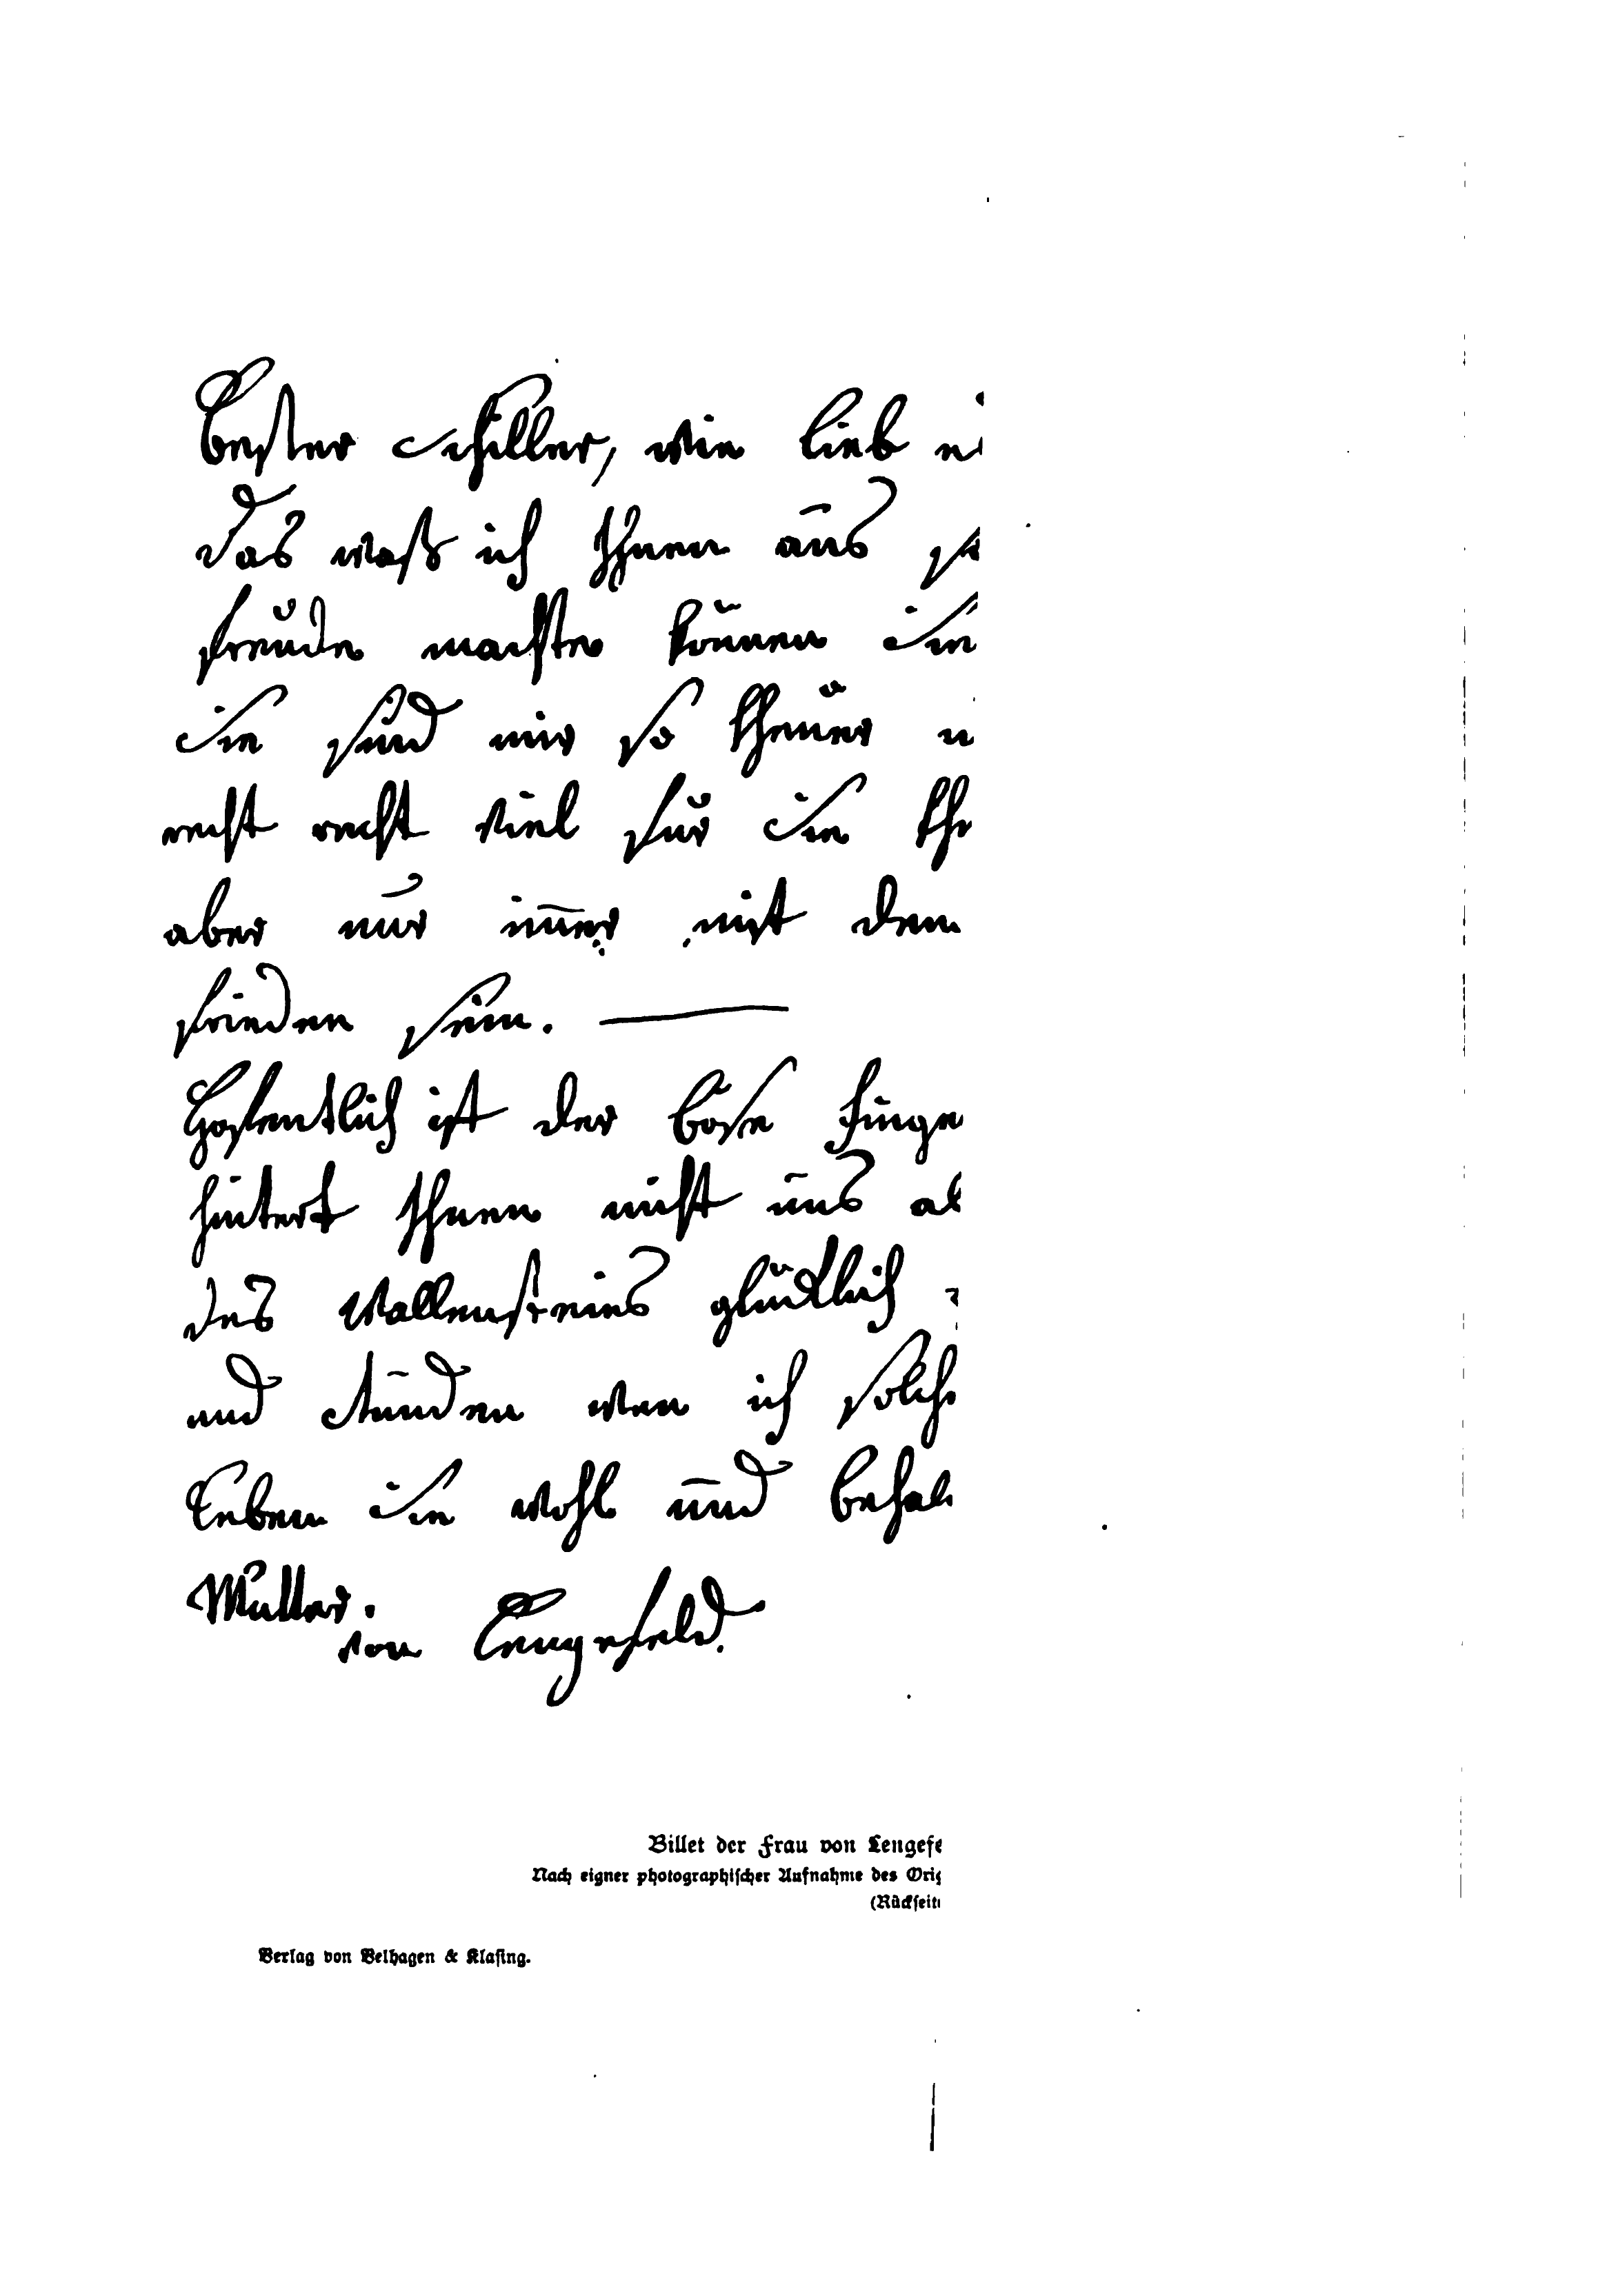 Bester Schiller, wie lieb
das waß ich Ihnen aus
freude machte können Sie
Sie sind mir so theuer u
recht recht viel für Sie th
aber nur im̄er mit dem
frieden sein. —
Hofentlich ist der böse Finge
hintert Ihnen nicht uns al
des Wallensteins glücklich
und Stunden wen ich solch
Leben Sie wohl und behal
Mutter.
von Lengefeld.
Billet der Frau von Lengefe
Nach eigner photographischer Aufnahme des Orig
(Rückseite
Verlag von Velhagen & Klasing.